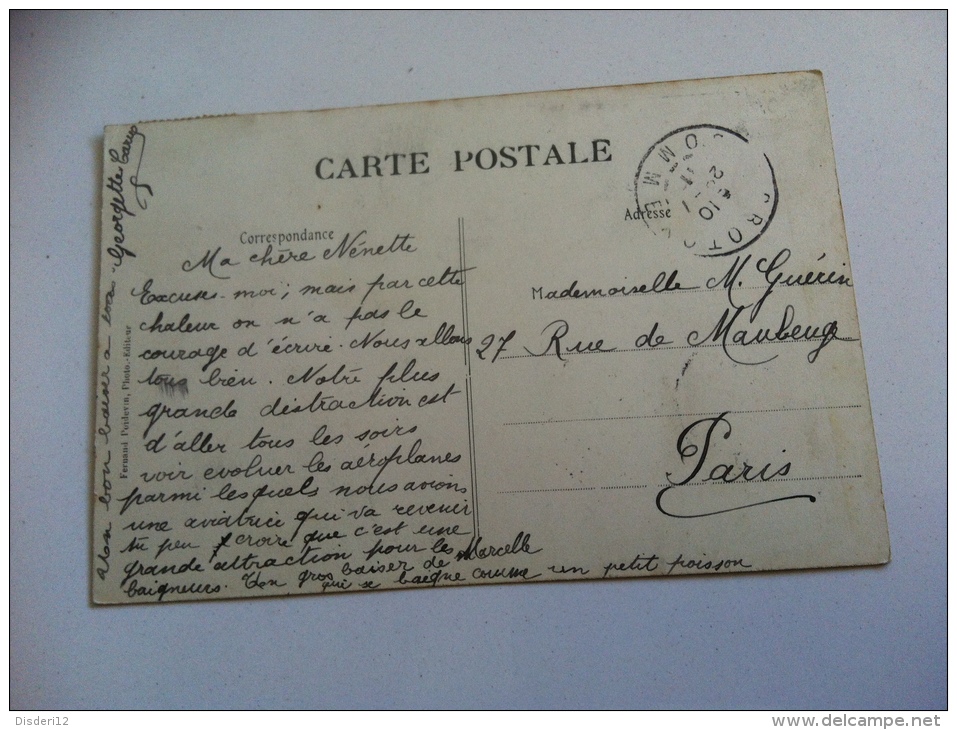 CARTE POSTALE
Correspondance
Adresse
Ma chère Nénette
Excuses-moi; mais par cette
chaleur on n'a pas le
courage d'écrire. Nous allons
tous bien. Notre plus
grande distraction est
d'aller tous les soirs
voir evoluer les aéroplanes
parmi lesquels nous avions
une aviatrice qui va revenir
tu peu croire que c'est une
grande attraction pour les
baigneurs. Ton gros baiser de Marcelle
qui se baigne comme un petit poisson
Mon bon baiser a toi Georgette
Fernand Poidevin, Photo.-Editeur
Mademoiselle M. Guérin
27 Rue de Maubeuge
Paris
CROTOY
SOMME
Disderi12
delcampe.net